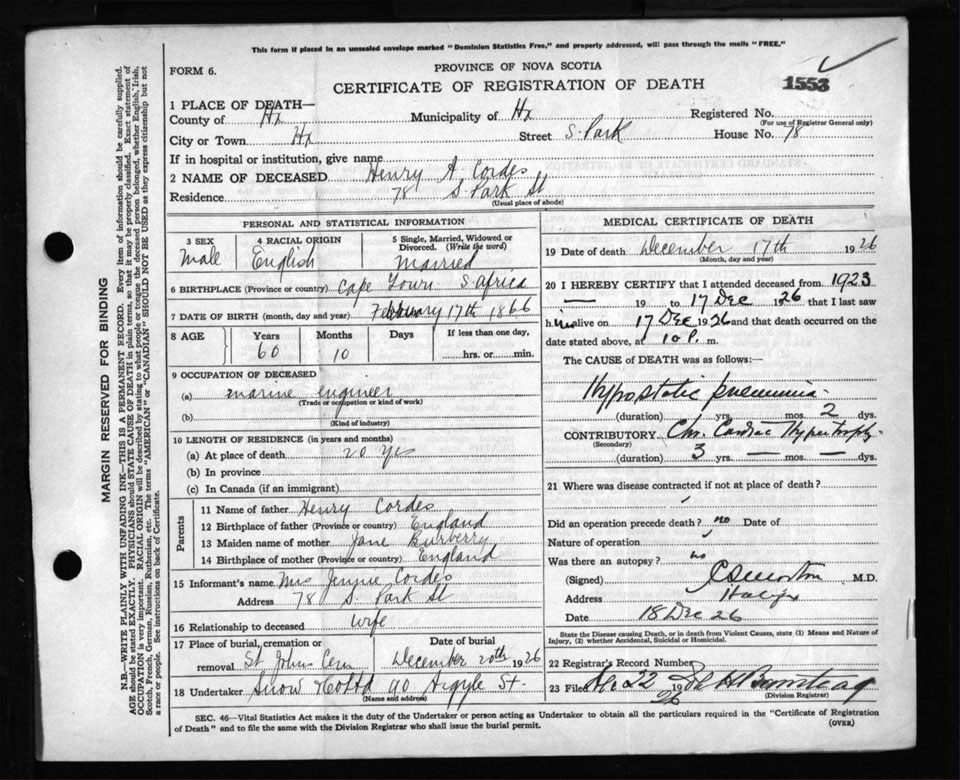 This form if placed in an unsealed envelope marked "Dominion Statistics Free," and properly addressed, will pass through the mails "FREE."
FORM 6.
PROVINCE OF NOVA SCOTIA
CERTIFICATE OF REGISTRATION OF DEATH
1553
1 PLACE OF DEATH—
County of Hx Municipality of Hx Registered No.
(For use of Registrar General only)
City or Town Hx Street S. Park House No. 78
If in hospital or institution, give name
2 NAME OF DECEASED Henry A. Cordes
Residence 78 S. Park St
(Usual place of abode)
PERSONAL AND STATISTICAL INFORMATION
3 SEX Male
4 RACIAL ORIGIN English
5 Single, Married, Widowed or Divorced. (Write the word) Married
6 BIRTHPLACE (Province or country) Cape Town S. Africa
7 DATE OF BIRTH (month, day and year) February 17th 1866
8 AGE Years Months Days If less than one day,
60 10 hrs. or min.
9 OCCUPATION OF DECEASED
(a) marine engineer
(Trade or occupation or kind of work)
(b)
(Kind of industry)
10 LENGTH OF RESIDENCE (in years and months)
(a) At place of death 20 yrs
(b) In province
(c) In Canada (if an immigrant)
Parents
11 Name of father Henry Cordes
12 Birthplace of father (Province or country) England
13 Maiden name of mother Jane Burberry
14 Birthplace of mother (Province or country) England
15 Informant's name Mrs Jennie Cordes
Address 78 S. Park St
16 Relationship to deceased wife
17 Place of burial, cremation or removal St Johns Cem Date of burial December 20th 1926
18 Undertaker Snow 90 Argyle St.
(Name and address)
MEDICAL CERTIFICATE OF DEATH
19 Date of death December 17th 1926
(Month, day and year)
20 I HEREBY CERTIFY that I attended deceased from 1923
— 19 to 17 Dec 1926 that I last saw
him alive on 17 Dec 1926 and that death occurred on the
date stated above, at 10 P. m.
The CAUSE of DEATH was as follows:
Hypostatic pneumonia
(duration) yrs. mos. 2 dys.
CONTRIBUTORY Chr. Cardiac Hypertrophy
(Secondary)
(duration) 3 yrs — mos. — dys.
21 Where was disease contracted if not at place of death?
Did an operation precede death? no Date of
Nature of operation
Was there an autopsy? no
(Signed) M.D.
Address Halifax
Date 18 Dec 26
State the Disease causing Death, or in death from Violent Causes, state (1) Means and Nature of Injury, (2) whether Accidental, Suicidal or Homicidal.
22 Registrar's Record Number
23 Filed Dec 22 1926
(Division Registrar)
SEC. 46—Vital Statistics Act makes it the duty of the Undertaker or person acting as Undertaker to obtain all the particulars required in the "Certificate of Registration
of Death" and to file the same with the Division Registrar who shall issue the burial permit.
(OVER)
MARGIN RESERVED FOR BINDING
N.B.—WRITE PLAINLY WITH UNFADING INK—THIS IS A PERMANENT RECORD. Every item of information should be carefully supplied.
AGE should be stated EXACTLY. PHYSICIANS should STATE CAUSE OF DEATH in plain terms, so that it may be properly classified. Exact statement of
OCCUPATION is very important. RACIAL ORIGIN will be described by stating to what people or tongue the deceased person belonged, whether English, Irish,
Scotch, French, German, Russian, Ruthenian, etc. The terms "AMERICAN" or "CANADIAN" SHOULD NOT BE USED as they express citizenship but not
a race or people. See instructions on back of Certificate.